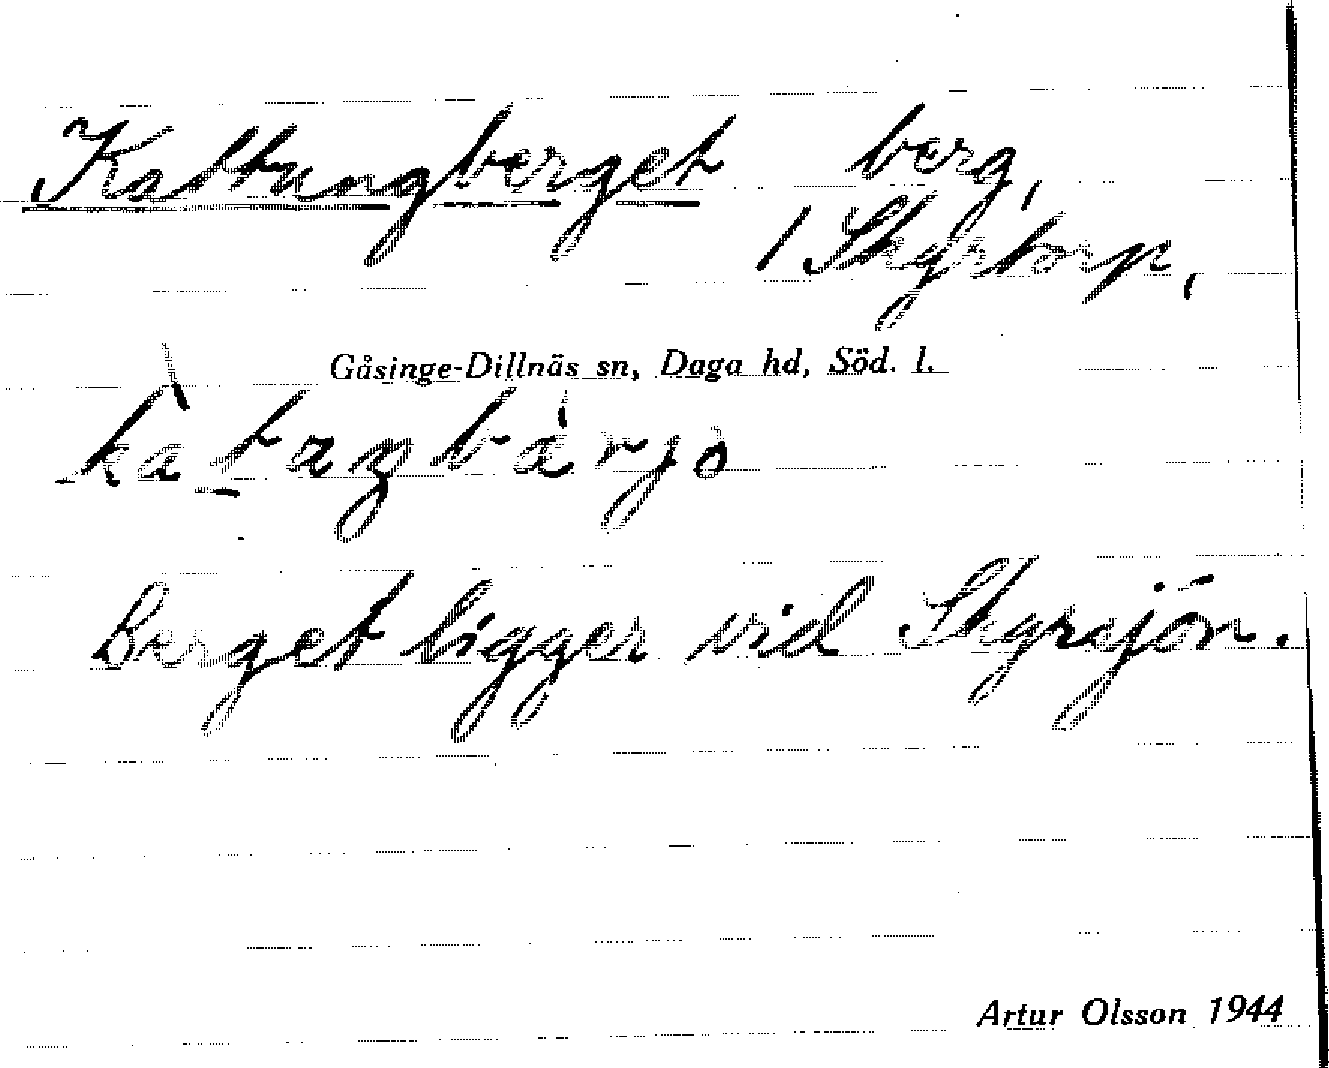 Kattungberget berg,
1 Skyrtorp,
Gåsinge-Dillnäs sn, Daga hd, Söd. l.
Berget ligger vid Skyrsjön.
Artur Olsson 1944